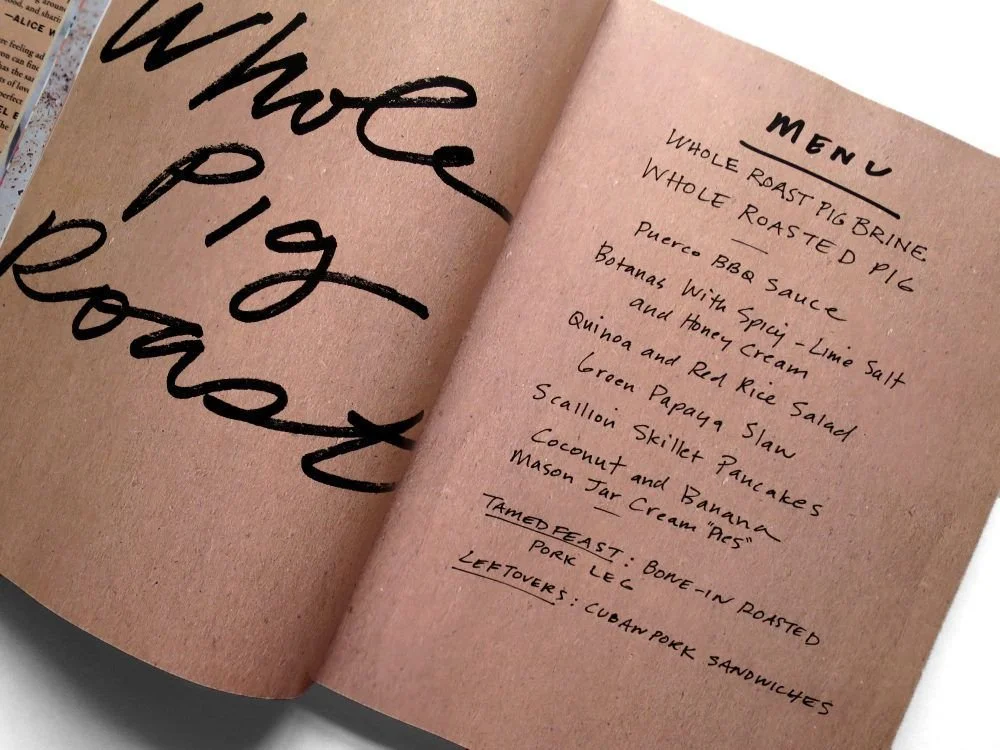 food, and shari
—ALICE W
re feeling ad
on can find
has the sa
s of love
perfect
EL E
The
Whole
Pig
Roast
MENU
WHOLE ROAST PIG BRINE
WHOLE ROASTED PIG
Puerco BBQ Sauce
Botanas With Spicy-Lime Salt
and Honey Cream
Quinoa and Red Rice Salad
Green Papaya Slaw
Scallion Skillet Pancakes
Coconut and Banana
Mason Jar Cream "Pies"
TAMED FEAST: BONE-IN ROASTED
PORK LEG
LEFTOVERS: CUBAN PORK SANDWICHES